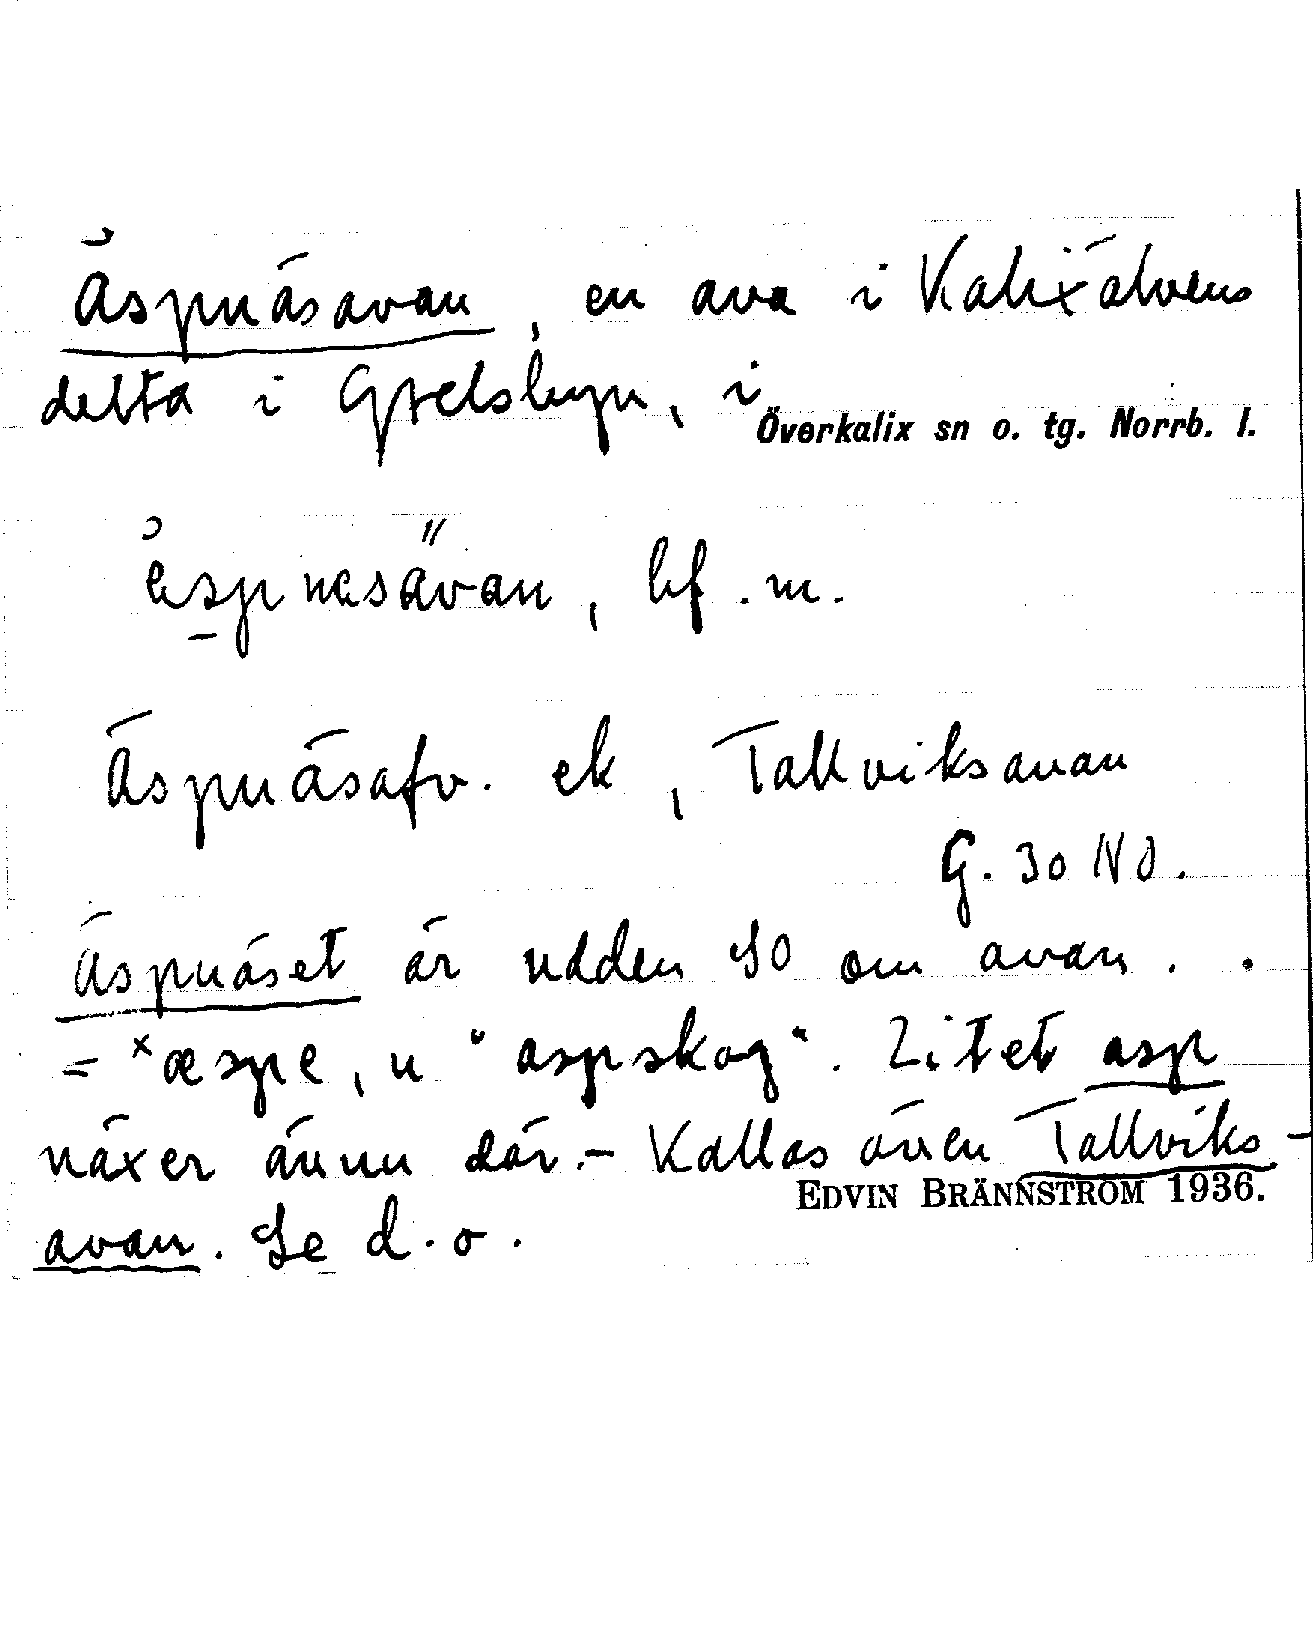 Äspnäsavan, en ava i Kalixälvens
delta i Grelsbyn, i
Överkalix sn o. tg. Norrb. l.
äspnesävan, bf. m.
Äspnäsafv. ek, Tallviksavan
G. 30 NO.
Äspnäset är udden SO om avan.
= ˣæspe, n "aspskog". Litet asp
växer ännu där.- Kallas även Tallviks-
EDVIN BRÄNNSTRÖM 1936.
avan. Se d. o.